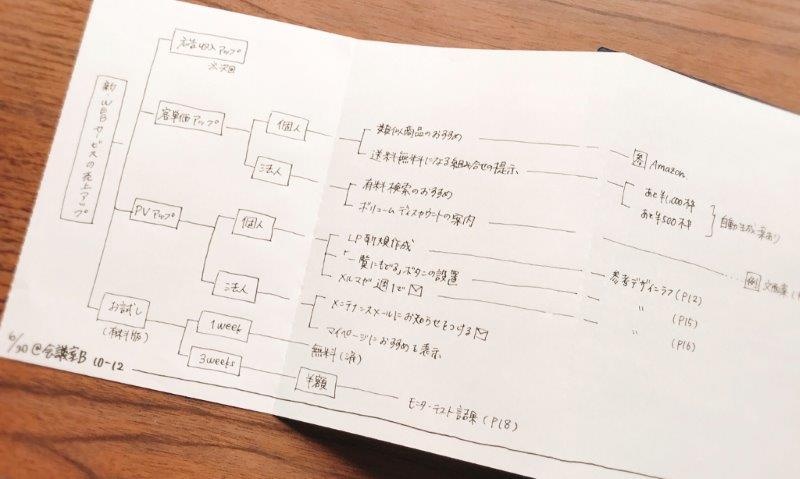 新WEBサービスの売上アップ
広告収入アップ
※次回
客単価アップ
個人
類似商品のおすすめ
参 Amazon
送料無料になる組み合せの提示
あと¥1,000枠
あと¥500枠
自動生成案あり
法人
有料検索のおすすめ
ボリュームディスカウントの案内
例 文面案
PVアップ
個人
LP新規作成
参考デザインラフ(P12)
「一覧にもどる」ボタンの設置
〃 (P15)
メルマガ 週1で
〃 (P16)
法人
メンテナンスメールにお知らせをつける
マイページにおすすめを表示
お試し
(有料版)
1week
無料(済)
3weeks
半額
モニターテスト結果(P18)
6/30@会議室B 10-12